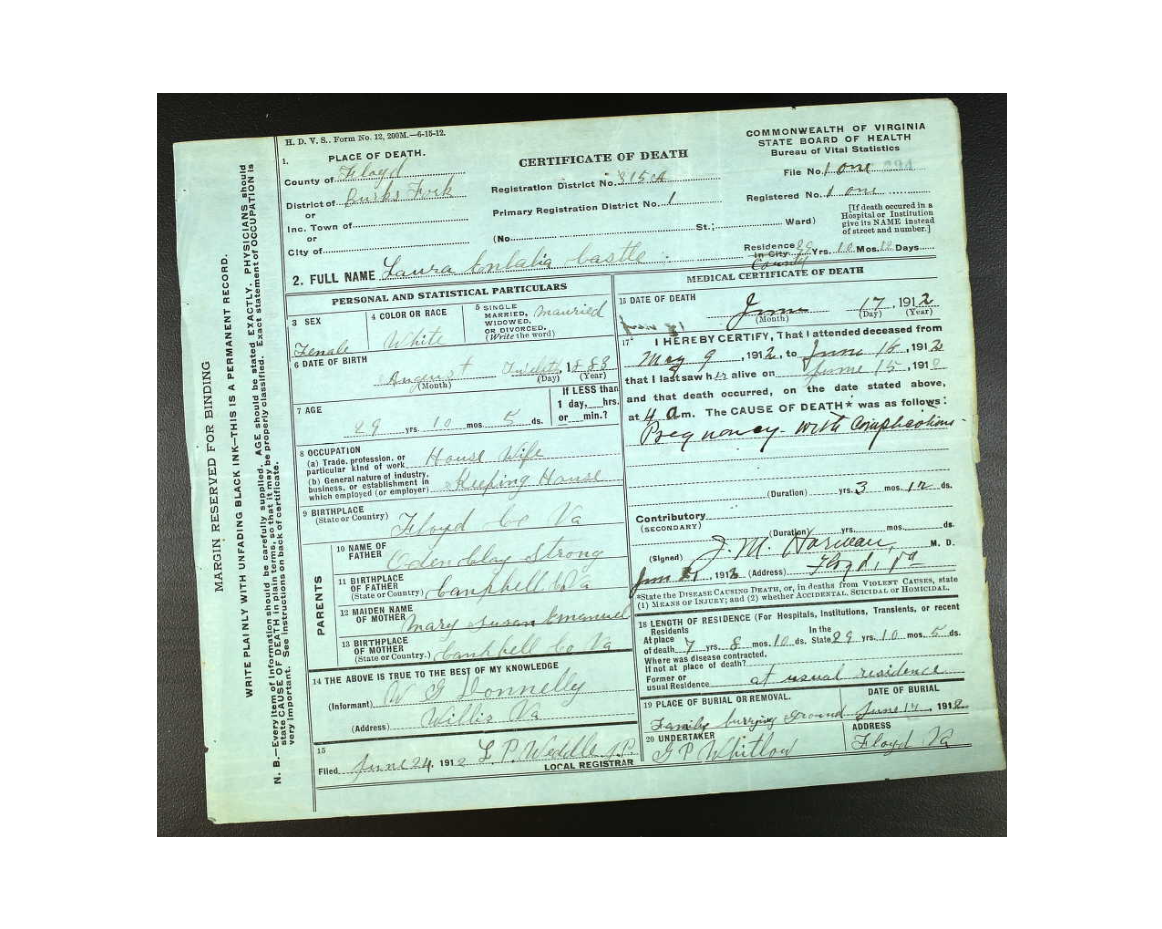 H. D. V. S.. Form No. 12, 200M.—6-15-12.
COMMONWEALTH OF VIRGINIA
STATE BOARD OF HEALTH
Bureau of Vital Statistics
1. PLACE OF DEATH.
CERTIFICATE OF DEATH
County of Floyd
File No. 1 one
District of Burks Fork
Registration District No. 315A
Registered No. 1 one
or
Inc. Town of
Primary Registration District No. 1
[If death occured in a
Hospital or Institution
give its NAME instead
of street and number.]
or
City of
(No. St.; Ward)
Residence in City County 29 Yrs. 10 Mos. 12 Days
2. FULL NAME Laura Castle
PERSONAL AND STATISTICAL PARTICULARS
3 SEX
Female
4 COLOR OR RACE
White
5 SINGLE
MARRIED,
WIDOWED,
OR DIVORCED,
(Write the word)
married
6 DATE OF BIRTH
August
(Month) (Day) (Year)
7 AGE
29 yrs. 10 mos. 5 ds.
If LESS than
1 day, hrs.
or min.?
8 OCCUPATION
(a) Trade, profession, or
particular kind of work House Wife
(b) General nature of industry,
business, or establishment in
which employed (or employer) Keeping House
9 BIRTHPLACE
(State or Country) Floyd Co Va
PARENTS
10 NAME OF
FATHER Oden Clay Strong
11 BIRTHPLACE
OF FATHER
(State or Country) Campbell Co Va
12 MAIDEN NAME
OF MOTHER Mary Susan Emanuel
13 BIRTHPLACE
OF MOTHER
(State or Country.) Campbell Co Va
14 THE ABOVE IS TRUE TO THE BEST OF MY KNOWLEDGE
(Informant) W G Donnelly
(Address) Willis Va
15
Filed June 24, 1912 L. P. Weddle
LOCAL REGISTRAR
MEDICAL CERTIFICATE OF DEATH
15 DATE OF DEATH
June 17, 1912
(Month) (Day) (Year)
17 I HEREBY CERTIFY, That I attended deceased from
May 9, 1912, to June 15, 1912
that I last saw her alive on June 15, 1912
and that death occurred, on the date stated above,
at 4 a m. The CAUSE OF DEATH* was as follows:
Pregnancy with complications
(Duration) yrs. 3 mos. 12 ds.
Contributory
(SECONDARY)
(Duration) yrs. mos. ds.
(Signed) J. M. Harman, M. D.
June 1912 (Address) Floyd, Va
*State the DISEASE CAUSING DEATH, or, in deaths from VIOLENT CAUSES, state
(1) MEANS OF INJURY; and (2) whether ACCIDENTAL, SUICIDAL or HOMICIDAL.
18 LENGTH OF RESIDENCE (For Hospitals, Institutions, Transients, or recent
Residents
At place of death 7 yrs. 8 mos. 10 ds. In the State 29 yrs. 10 mos. 5 ds.
Where was disease contracted,
If not at place of death?
Former or
usual Residence at usual residence
19 PLACE OF BURIAL OR REMOVAL.
Family burrying ground
DATE OF BURIAL
June 17 1912
20 UNDERTAKER
G P Whitlow
ADDRESS
Floyd Va
MARGIN RESERVED FOR BINDING
WRITE PLAINLY WITH UNFADING BLACK INK—THIS IS A PERMANENT RECORD.
N. B.—Every item of information should be carefully supplied. AGE should be stated EXACTLY. PHYSICIANS should
state CAUSE OF DEATH in plain terms, so that it may be properly classified. Exact statement of OCCUPATION is
very important. See instructions on back of certificate.